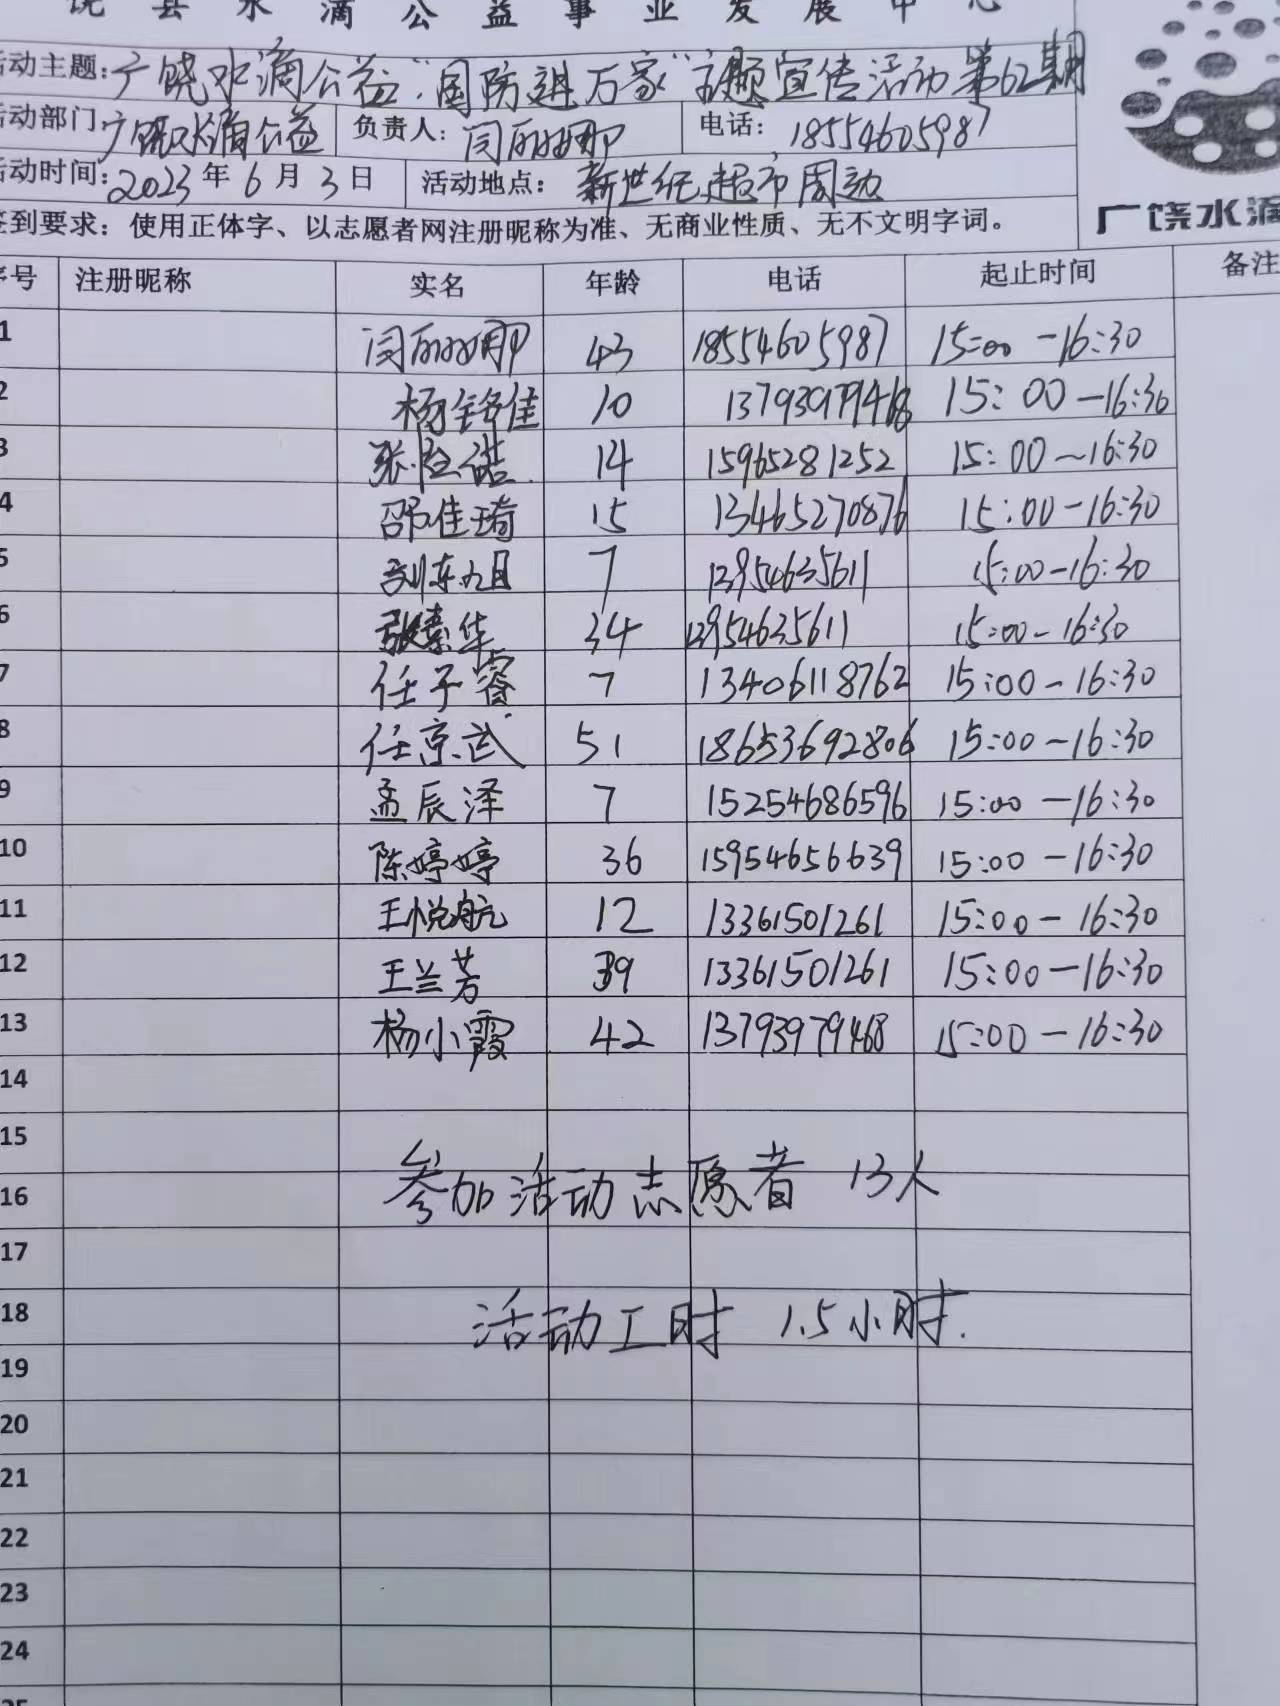 饶县水滴公益事业发展中心
活动主题：广饶水滴公益"国防进万家"主题宣传活动第62期
活动部门：广饶水滴公益 负责人：闫丽娜 电话：18554605987
活动时间：2023年6月3日 活动地点：新世纪超市周边
签到要求：使用正体字、以志愿者网注册昵称为准、无商业性质、无不文明字词。
广饶水滴
序号 注册昵称 实名 年龄 电话 起止时间 备注
1 闫丽娜 43 18554605987 15:00-16:30
2 杨铭佳 10 13793979468 15:00-16:30
3 张 诺 14 15965281252 15:00~16:30
4 邵佳琦 15 13465270876 15:00-16:30
5 刘东 7 13954635611 15:00-16:30
6 张素华 34 13954635611 15:00-16:30
7 任子睿 7 13406118762 15:00-16:30
8 任京武 51 18653692806 15:00-16:30
9 孟辰泽 7 15254686596 15:00-16:30
10 陈婷婷 36 15954656639 15:00-16:30
11 王悦航 12 13361501261 15:00-16:30
12 王兰芳 39 13361501261 15:00-16:30
13 杨小霞 42 13793979468 15:00-16:30
14
15
参加活动志愿者 13人
16
17
18 活动工时 1.5小时.
19
20
21
22
23
24
25